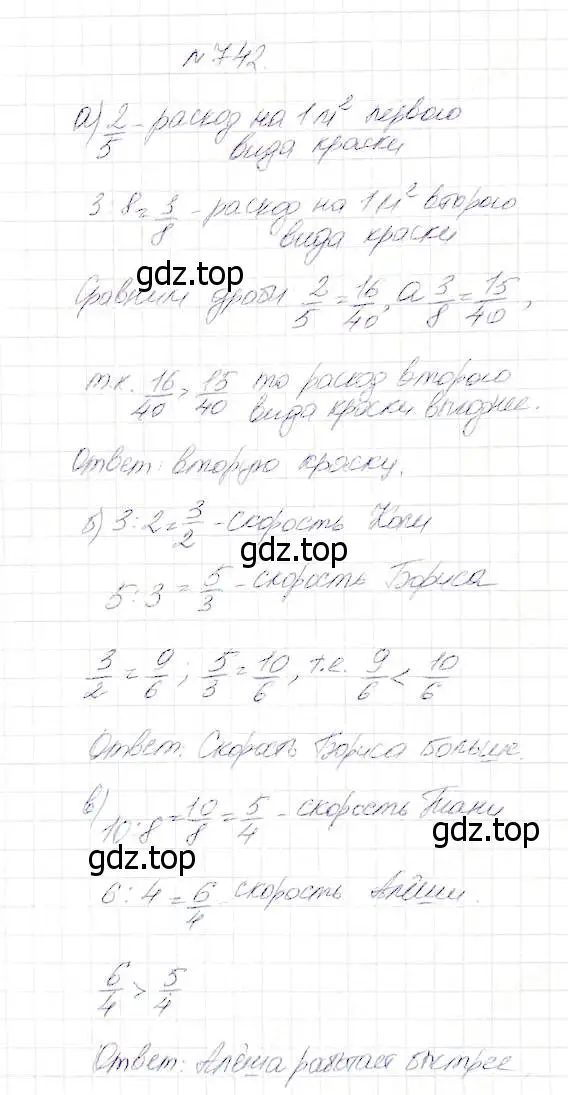 №742.
а) 2/5 - расход на 1м² первого
вида краски
3:8=3/8 - расход на 1м² второго
вида краски
gdz.top
Сравним дроби 2/5=16/40, а 3/8=15/40,
т.к. 16/40>15/40 то расход второго
вида краски выгоднее.
Ответ: вторую краску.
б) 3:2=3/2 - скорость Коли
gdz.top
5:3=5/3 - скорость Бориса
3/2=9/6; 5/3=10/6, т.е. 9/6<10/6
Ответ: Скорость Бориса больше.
в) 10:8=10/8=5/4 - скорость Тани
gdz.top
6:4=6/4 скорость Алёши.
6/4>5/4
Ответ: Алёша работает быстрее.